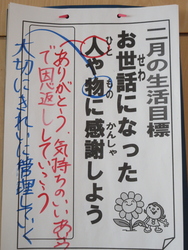 二月の生活目標
お世話になった
せわ
人や物に感謝しよう
ひと もの かんしゃ
ありがとう、気持ちのいい
で恩返ししていこう
大切にきれいに管理していく